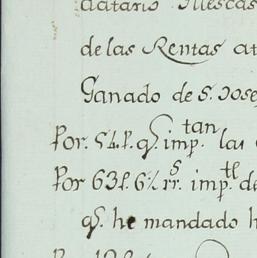 datario Illescas
de las Rentas at
Ganado de S. Jose
Por. 54 p. q.ͤ imp.ᵗᵃⁿ las
Por 63 p. 6½ r.ˢ imp.ᵗˡ de
q.ͤ he mandado h